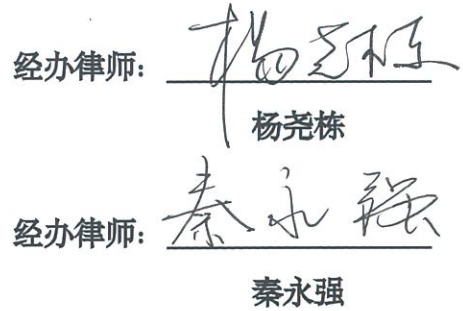 经办律师：杨尧栋
杨尧栋
经办律师：秦永强
秦永强